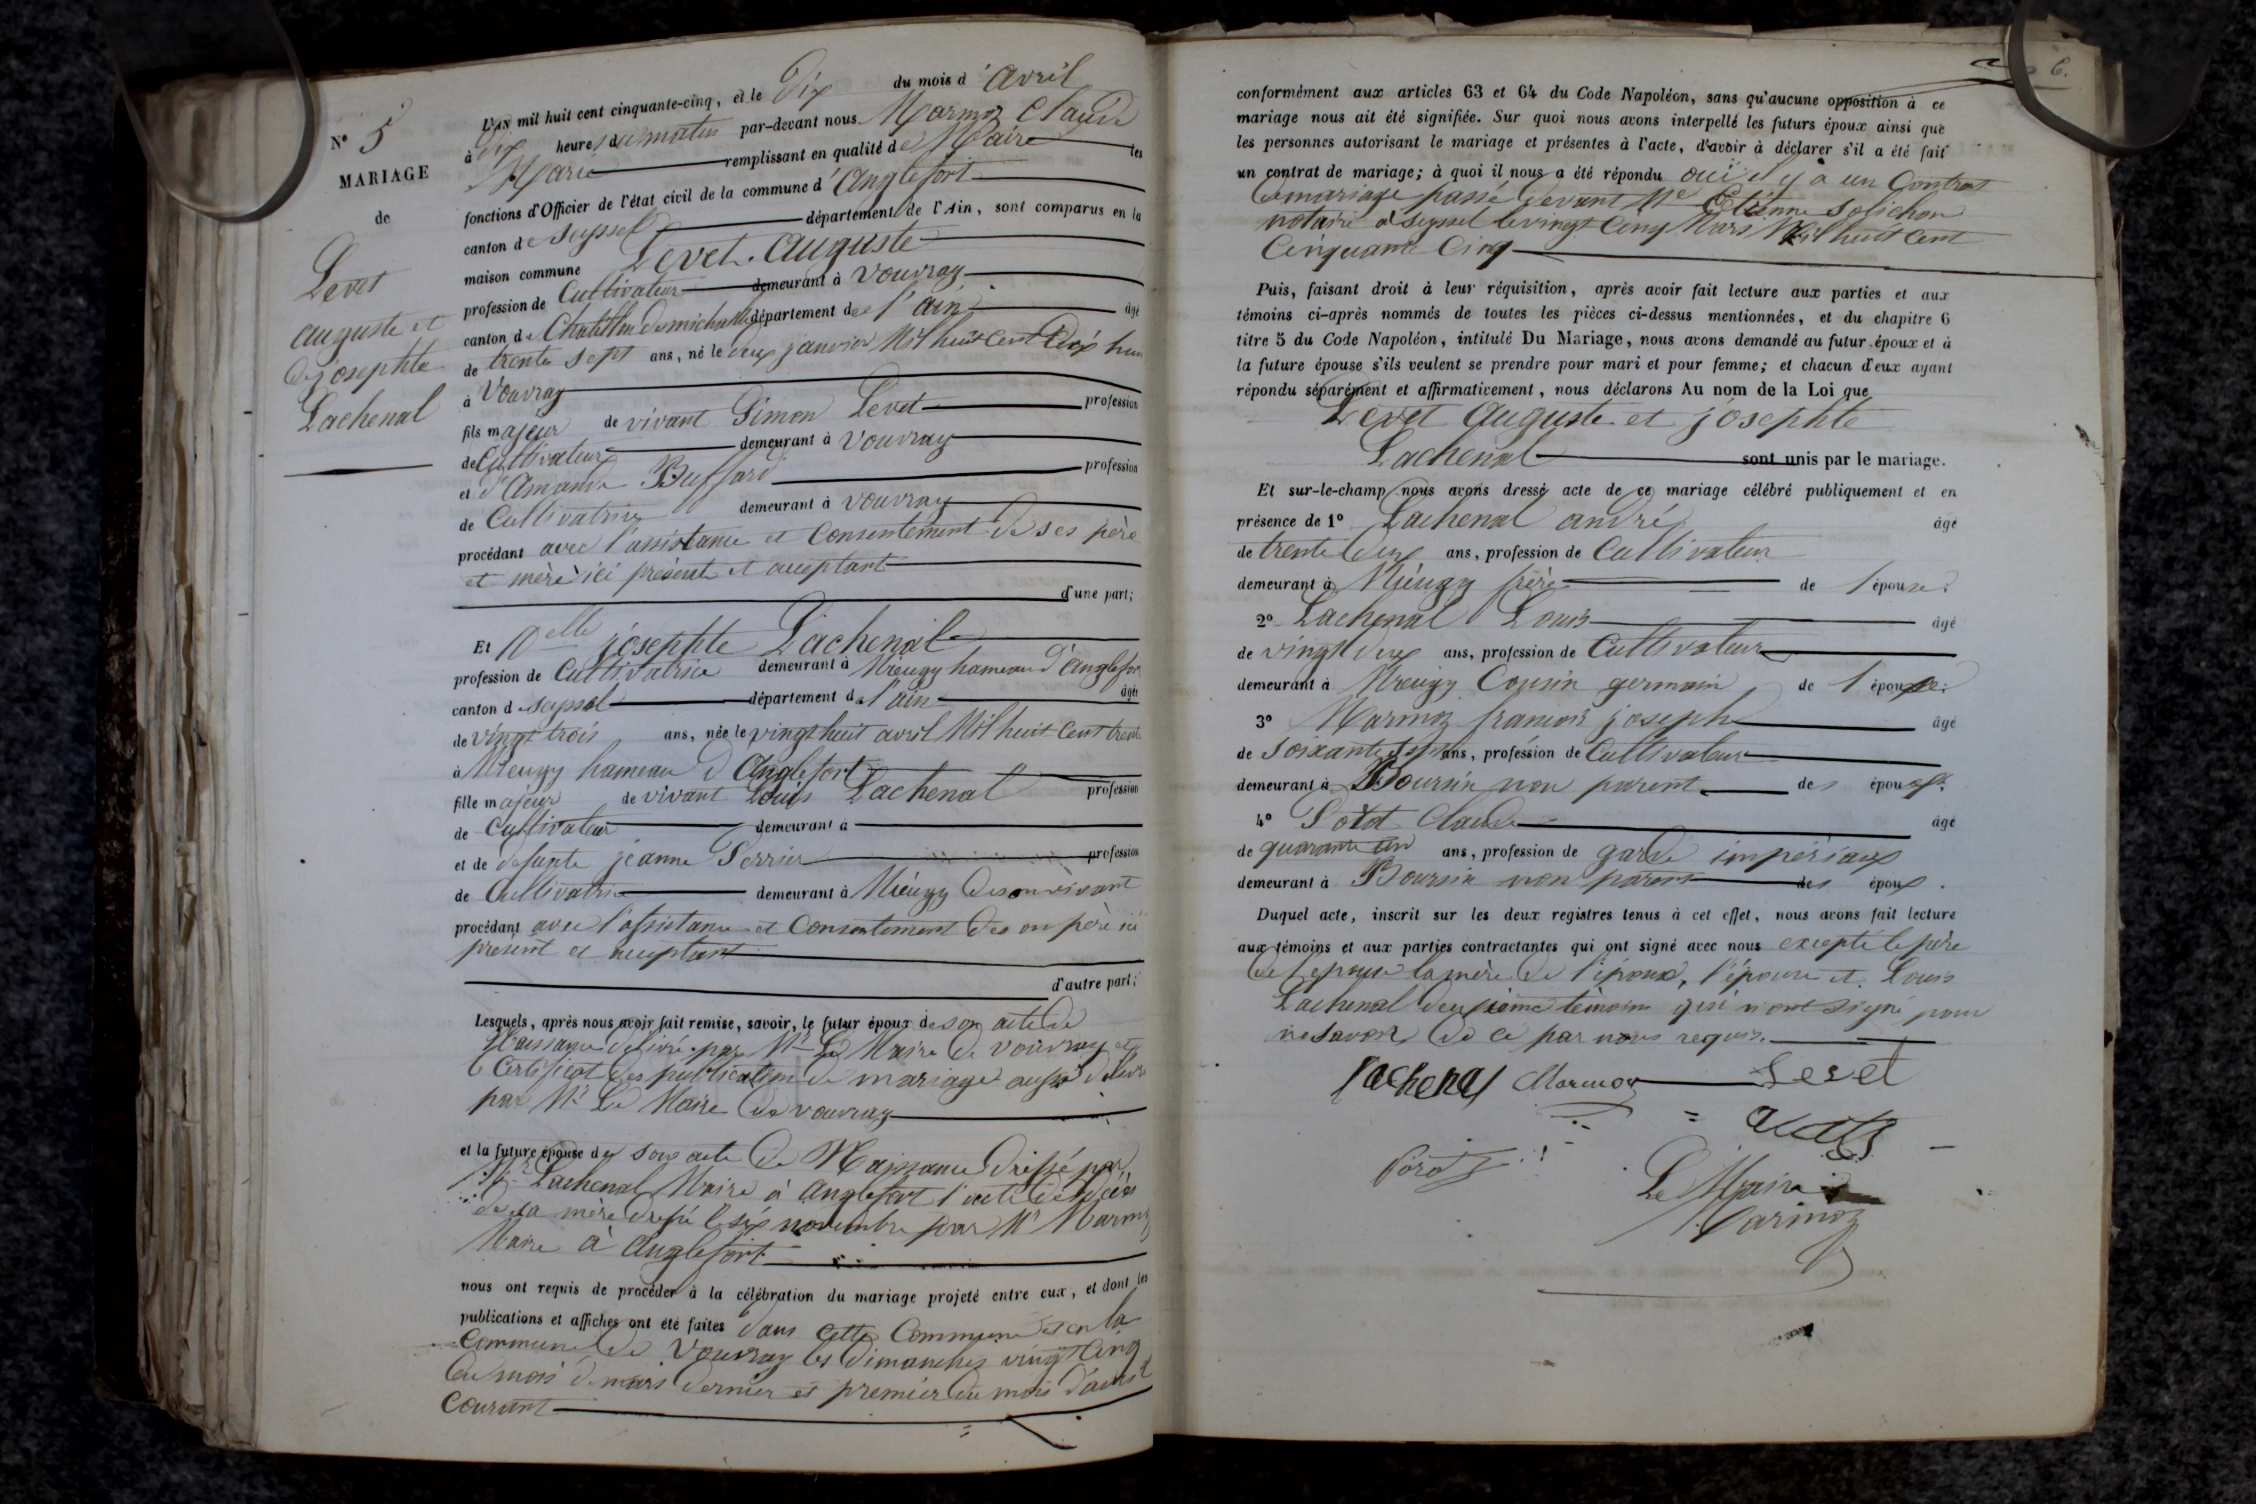 N° 5
MARIAGE
de
Levet
auguste et
de josephte
Lachenal
L'AN mil huit cent cinquante-cinq, et le Dix du mois d'avril
à Dix heures du matin par-devant nous Marmoz Claude
Marie remplissant en qualité de Maire les
fonctions d'Officier de l'état civil de la commune d'Anglefort
canton de Seyssel département de l'Ain, sont comparus en la
maison commune Levet Auguste
profession de Cultivateur demeurant à Vouvray
canton de Chatillon de michaille département de l'ain âgé
de trente sept ans, né le deux janvier Mil huit cent Dix huit
à Vouvray
fils majeur de vivant Simon Levet profession
de Cultivateur demeurant à Vouvray
et d'Amande Buffard profession
de Cultivatrice demeurant à Vouvray
procédant avec l'assistance et Consentement de ses père
et mère ici présent et acceptant
d'une part;
Et Delle josephte Lachenal
profession de Cultivatrice demeurant à Mieugy hameau d'anglefort
canton d Seyssel département de l'ain âgée
de vingt trois ans, née le vingt huit avril Mil huit Cent trente
à Mieugy hameau d'Anglefort
fille majeur de vivant Louis Lachenal profession
de Cultivateur demeurant à
et de defunte jeanne Perrier profession
de Cultivatrice demeurant à Mieugy de son vivant
procédant avec l'assistance et Consentement de son père ici
present et acceptant
d'autre part;
Lesquels, après nous avoir fait remise, savoir, le futur époux de son acte de
Naissance délivré par Mr Le Maire de Vouvray et
le Certificat des publication de mariage aussi délivré
par Mr Le Maire de vouvray
et la future épouse de son acte de Naissance dressé par
Mr Lachenal Maire à Anglefort l'acte de décès
de sa mère dressé le six novembre par Mr Marmoz
Maire à Anglefort
nous ont requis de procéder à la célébration du mariage projeté entre eux, et dont les
publications et affiches ont été faites dans cette Commune et en la
Commune de Vouvray les Dimanches vingt Cinq
du mois de mars dernier et premier du mois d'avril
Courant
6.
conformément aux articles 63 et 64 du Code Napoléon, sans qu'aucune opposition à ce
mariage nous ait été signifiée. Sur quoi nous avons interpellé les futurs époux ainsi que
les personnes autorisant le mariage et présentes à l'acte, d'avoir à déclarer s'il a été fait
un contrat de mariage; à quoi il nous a été répondu oui il y a un Contrat
de mariage passé devant Me Etienne Solichon
notaire à Seyssel le vingt Cinq Mars Mil huit cent
Cinquante Cinq
Puis, faisant droit à leur réquisition, après avoir fait lecture aux parties et aux
témoins ci-après nommés de toutes les pièces ci-dessus mentionnées, et du chapitre 6
titre 5 du Code Napoléon, intitulé Du Mariage, nous avons demandé au futur époux et à
la future épouse s'ils veulent se prendre pour mari et pour femme; et chacun d'eux ayant
répondu séparément et affirmativement, nous déclarons Au nom de la Loi que
Levet Auguste et josephte
Lachenal sont unis par le mariage.
Et sur-le-champ nous avons dressé acte de ce mariage célébré publiquement et en
présence de 1° Lachenal andré âgé
de trente deux ans, profession de Cultivateur
demeurant à Mieugy frère de l'épouse.
2° Lachenal Louis âgé
de vingt deux ans, profession de Cultivateur
demeurant à Mieugy Cousin germain de l'épouse.
3° Marmoz francois joseph âgé
de Soixante sept ans, profession de Cultivateur
demeurant à Boursin non parent des époux.
4° Poral Claude âgé
de quarante un ans, profession de garde impériaux
demeurant à Boursin non parent des époux.
Duquel acte, inscrit sur les deux registres tenus à cet effet, nous avons fait lecture
aux témoins et aux parties contractantes qui ont signé avec nous excepté le père
de l'epouse la mère de l'époux, l'épouse et Louis
Lachenal deuxieme témoin qui n'ont signé pour
ne savoir de ce par nous requis.
Lachenal Marmoz Levet
Le Maire
Marmoz